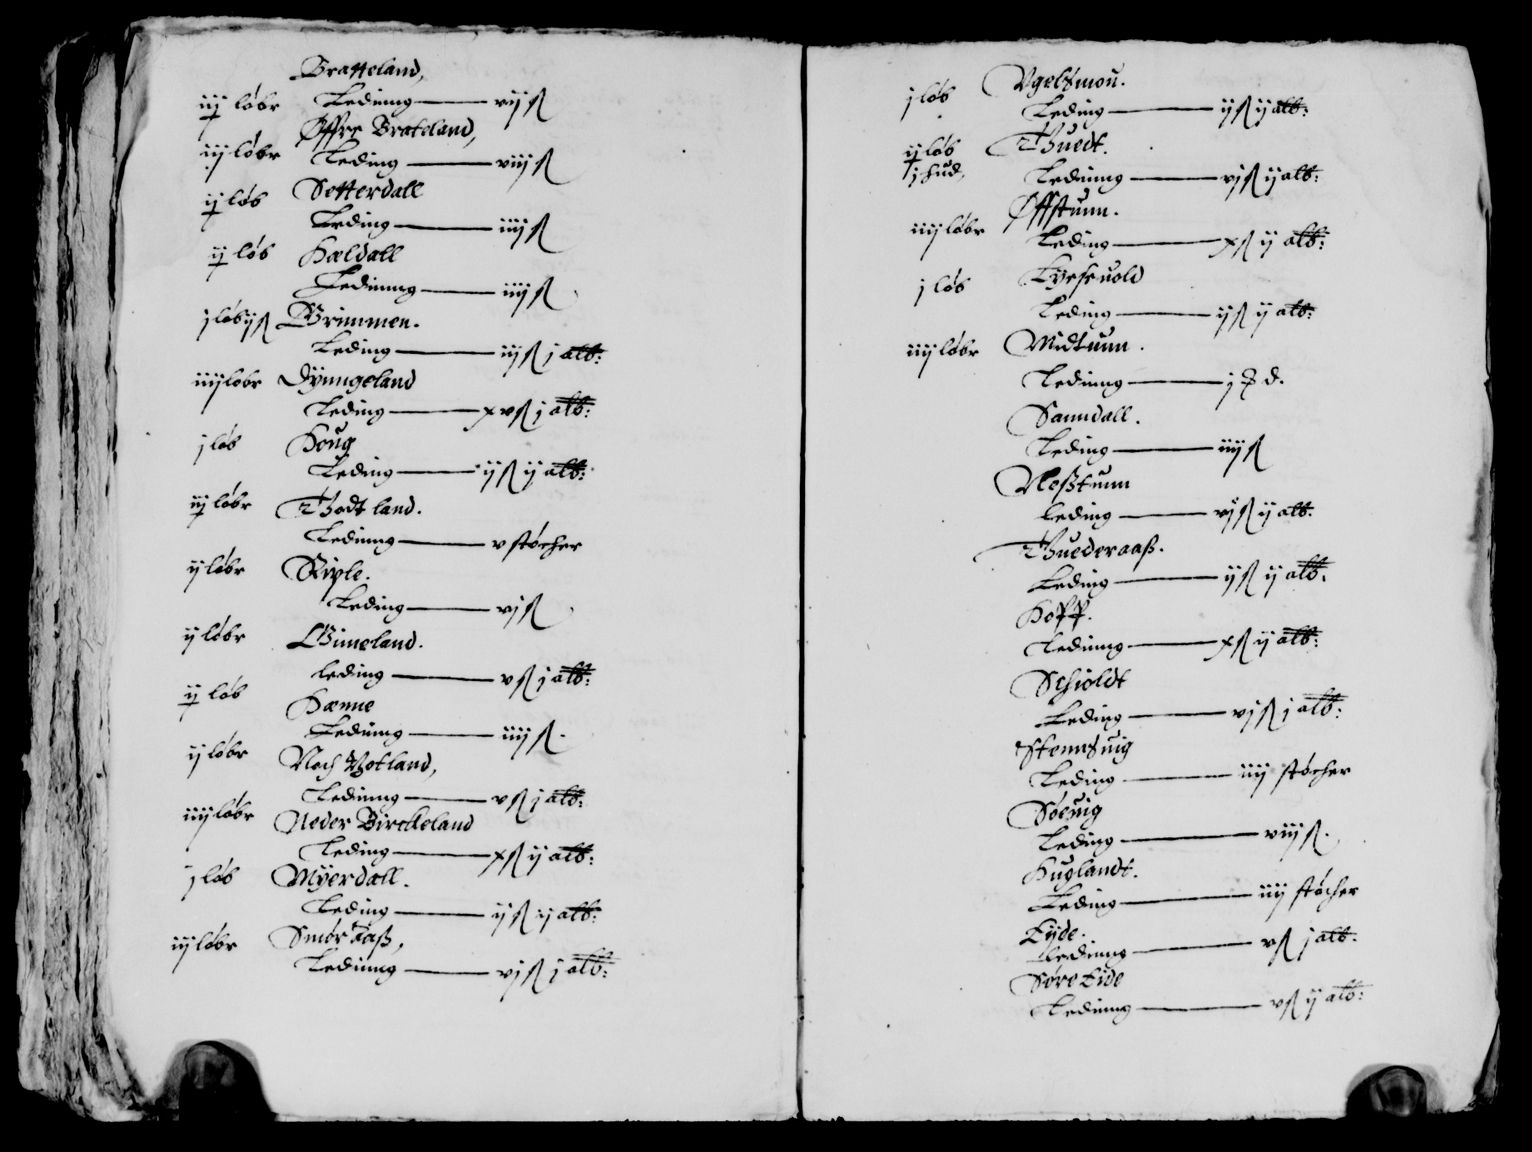 Bratteland,
iij løbr Leding — vij ß
Øffre Brateland,
iij løbr Leding — viij ß
Setterdall
ij løb Leding — iiij ß
Hældall
ij løb Ledinng — iiij ß
j løb ij ß Grimmen.
Leding — iij ß j alb:
iiij løbr Dynngeland
Leding — xv ß j alb:
j løb Houg
Leding — ij ß ij alb:
iij løbr Thodtland.
Ledinng — v støcher
ij løbr Riple.
Leding — vj ß
ij løbr Gimeland.
leding — v ß j alb:
ij løb Hænne
Ledinng — iiij ß.
ij løbr Noch Botland,
Ledinng — v ß j alb:
iiij løbr Neder Birckeland
Leding — x ß ij alb:
j løb Myerdall.
Leding — ij ß ij alb:
iij løbr Smøraaß,
Ledinng — vj ß j alb:
j løb Vgelsmou.
Leding — ij ß ij alb:
ij løb Thuedt.
j hud, Ledinng — vj ß ij alb:
Øffstunn.
iiij løbr Leding — x ß ij alb:
Lyseuold
j løb Leding — ij ß ij alb:
iiij løbr Midtunn.
Ledinng — j d.
Sanndall.
Leding — iiij ß
Neßtunn
leding — vj ß ij alb.
Thuederaaß.
Leding — ij ß ij alb.
Hopp.
Ledinng — x ß ij alb:
Schioldt
Leding — vj ß j alb:
Stennsuig
Leding — iiij støcher
Søeuig
Leding — viij ß.
Huglandt.
Leding — iiij støcher
Eyde.
Ledinng — v ß j alb:
Søre Eide
Ledinng — v ß ij alb: